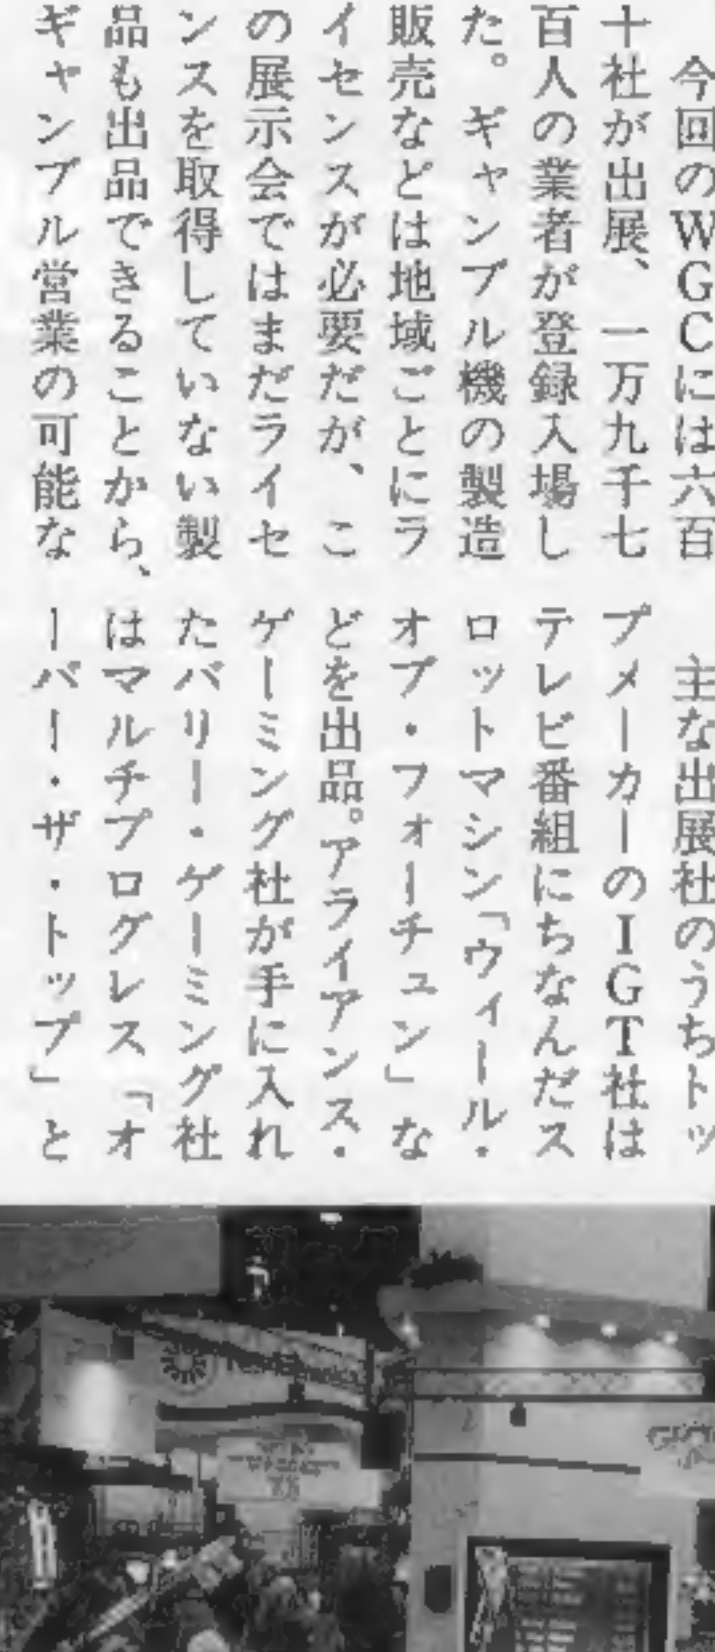 今回のWGCには六百
十社が出展、一万九千七
百人の業者が登録入場し
た。ギャンブル機の製造
販売などは地域ごとにラ
イセンスが必要だが、こ
の展示会ではまだライセ
ンスを取得していない製
品も出品できることから、
ギャンブル営業の可能な
主な出展社のうちトッ
プメーカーのIGT社は
テレビ番組にちなんだス
ロットマシン「ウィール・
オブ・フォーチュン」な
どを出品。アライアンス・
ゲーミング社が手に入れ
たバリー・ゲーミング社
はマルチプログレス「オ
ーバー・ザ・トップ」と